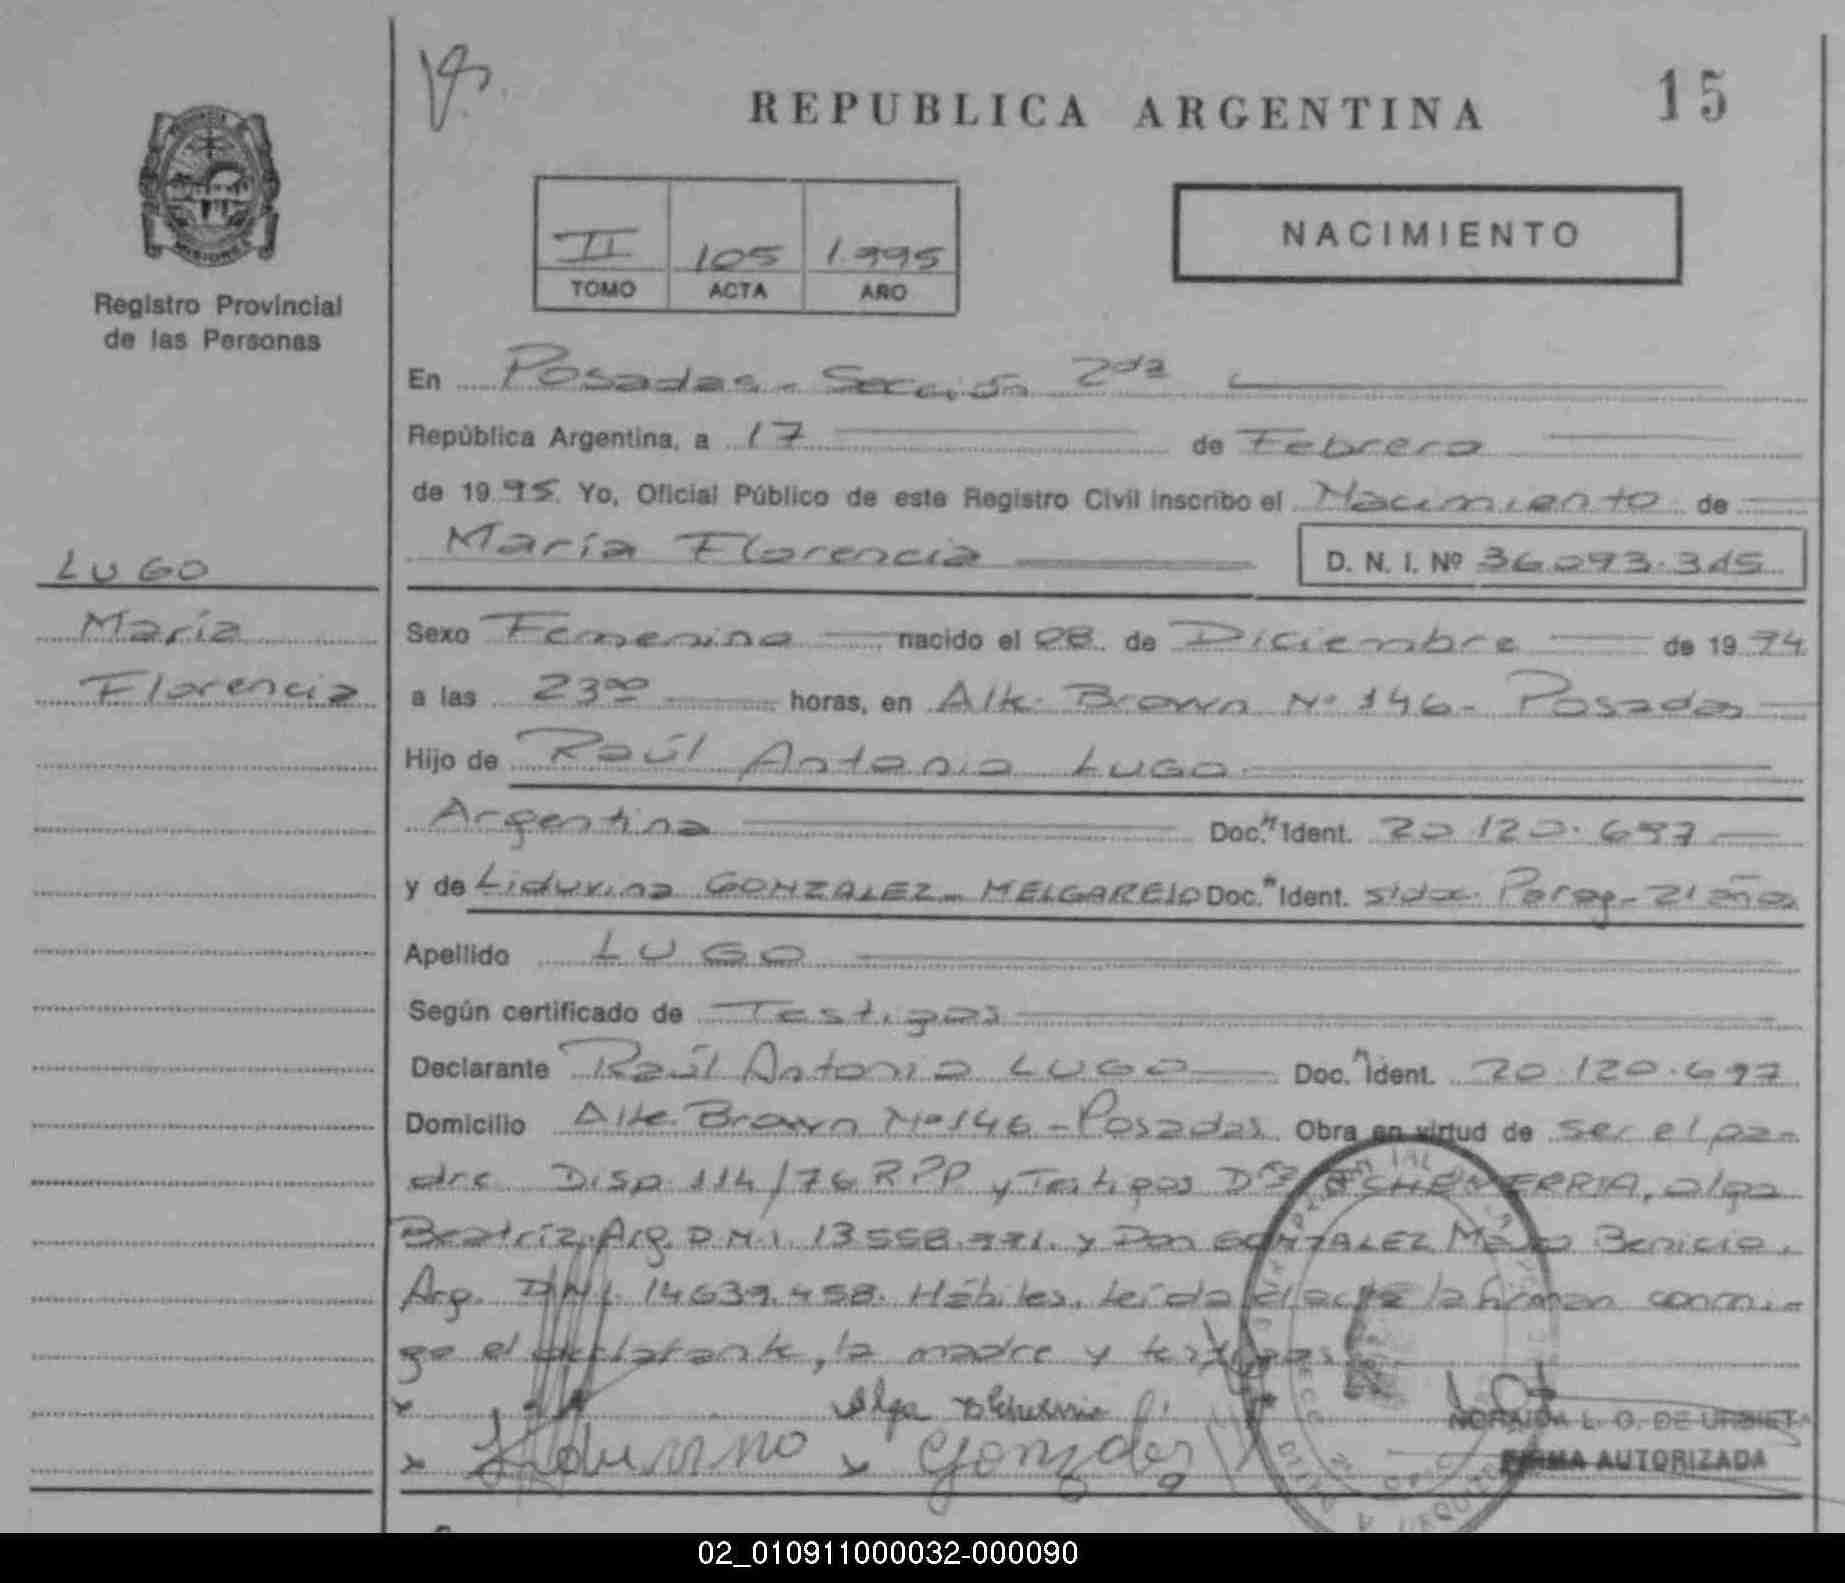 REPUBLICA ARGENTINA
15
Registro Provincial
de las Personas
II 105 1.995
TOMO ACTA AÑO
NACIMIENTO
En Posadas - Sección 2da
República Argentina, a 17 de Febrero
de 19 95. Yo, Oficial Público de este Registro Civil inscribo el Nacimiento de
María Florencia D. N. I. Nº
LUGO
María
Florencia
Sexo Femenino nacido el 08 de Diciembre de 19 94
a las 23⁰⁰ horas, en Alte. Brown Nº 146 - Posadas
Hijo de Raúl Antonio LUGO
Argentino Doc. Ident. 20.120.697
y de Liduvina GONZALEZ - MELGAREJO Doc. Ident. s/doc. Parag - 21 años
Apellido LUGO
Según certificado de Testigos
Declarante Raúl Antonio LUGO Doc. Ident. 20.120.697
Domicilio Alte. Brown Nº 146 - Posadas Obra en virtud de ser el pa-
dre Disp. 114/76 RPP y Testigos ECHEVERRIA, olga
Beatríz, Arg. D.N.I. 13558.991. y Don GONZALEZ Benicio,
Arg. DNI. 14639.458. Hábiles, leída el acta la firman conmi-
go el declarante, la madre y testigos
x Olga Echeverria
x Liduvina x Gonzalez
NORAIDA L. G. DE URBIETA
FIRMA AUTORIZADA
02_010911000032-000090